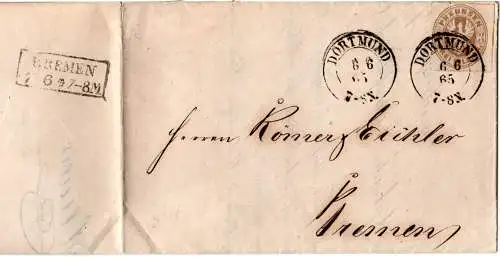 BREMEN
7 6 * 7-8M
DORTMUND
6 6
65
7-8X.
DORTMUND
6 6
65
7-8X.
PREUSSEN
Herren Römer & Eichler
Bremen